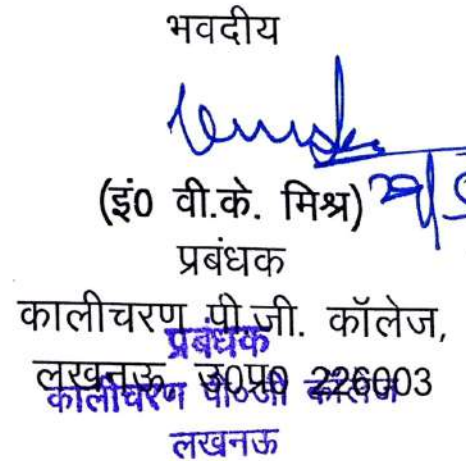 भवदीय
(इं0 वी.के. मिश्र)
प्रबंधक
कालीचरण पी.जी. कॉलेज,
प्रबंधक
लखनऊ उ0प्र0 226003
कालीचरण पी०जी कॉलेज
लखनऊ